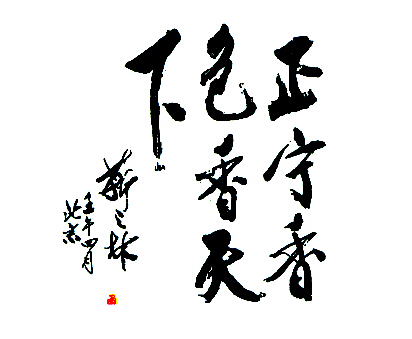 正守香
色香天
下
靳之林
壬午四月
北京